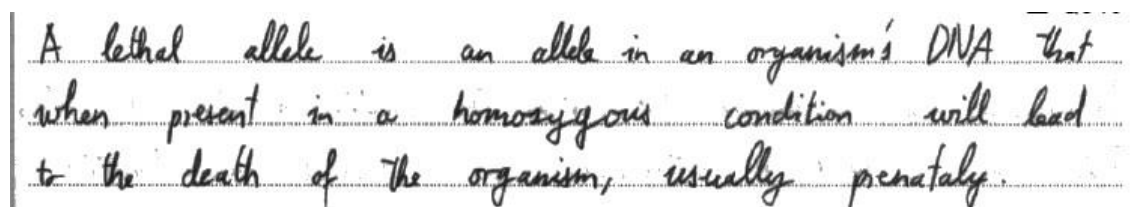 A lethal allele is an allele in an organism's DNA that
when present in a homozygous condition will lead
to the death of the organism, usually prenataly.